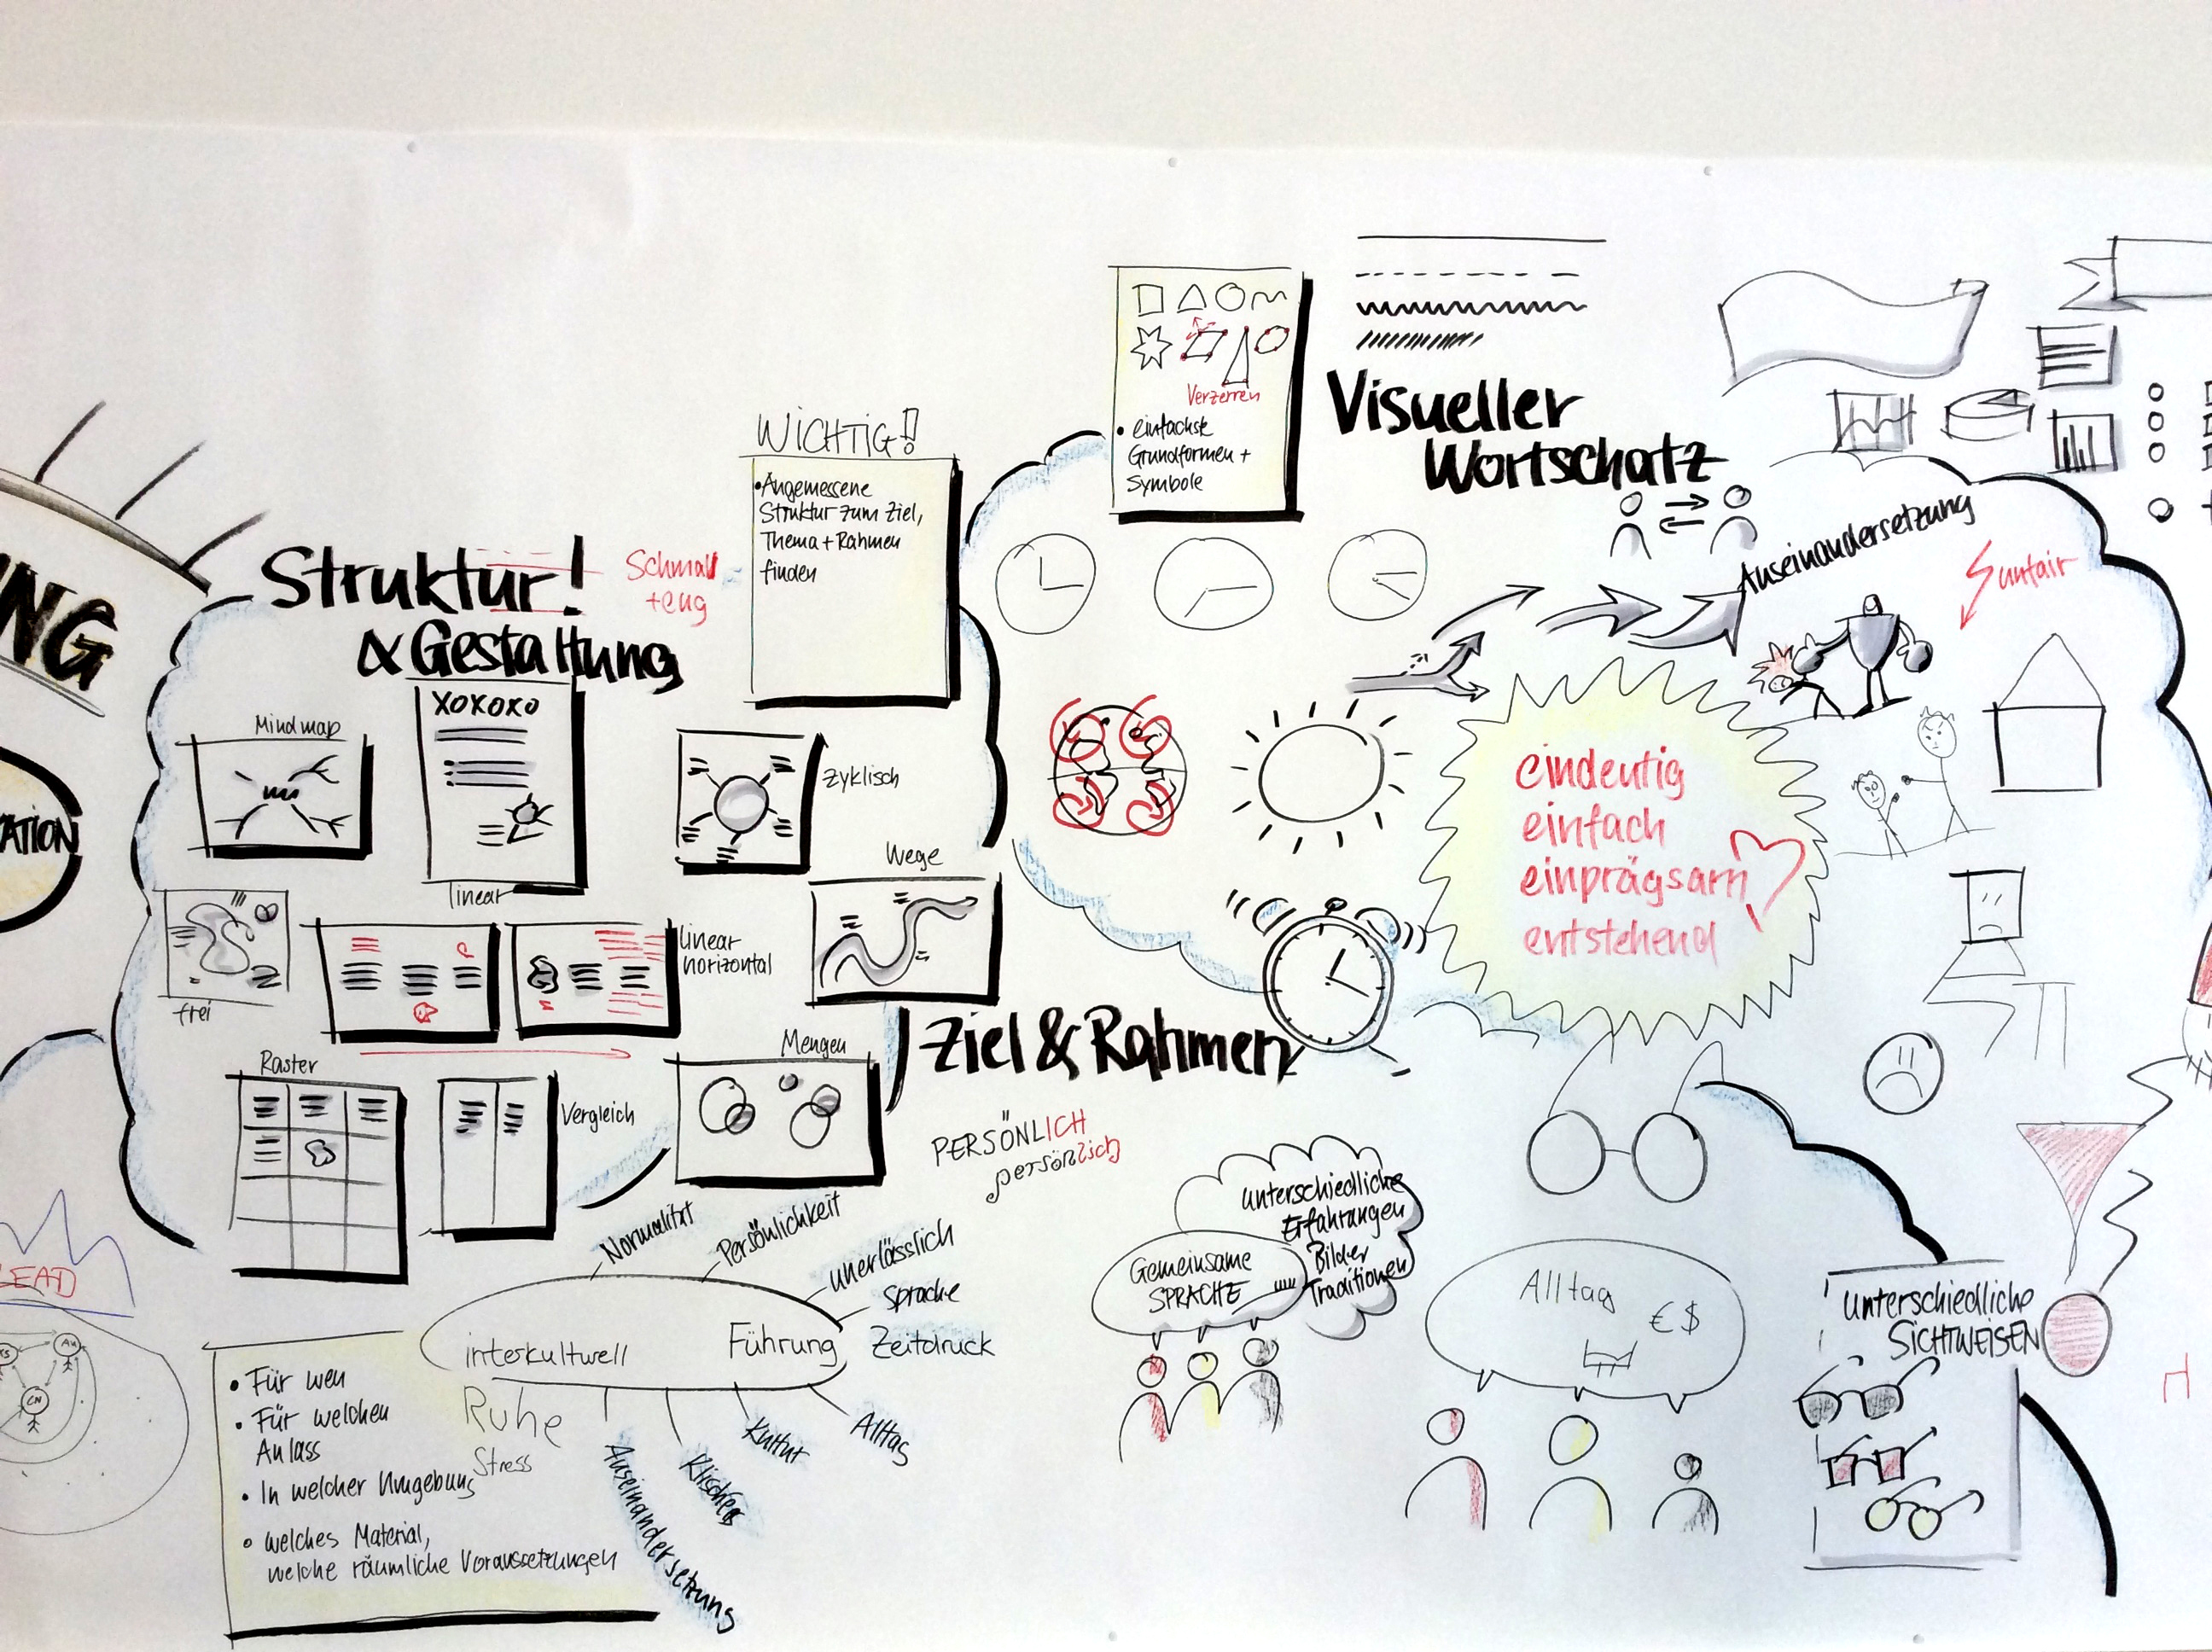 NG
ATION
LEAD
CN
Struktur!
& Gestaltung
Schmal
+eng
WICHTIG!
• Angemessene
Struktur zum Ziel,
Thema + Rahmen
finden
Mindmap
XOXOXO
linear
zyklisch
Wege
frei
linear
horizontal
Raster
Vergleich
Mengen
Verzerren
• einfachste
Grundformen +
Symbole
Visueller
Wortschatz
Auseinandersetzung
unfair
eindeutig
einfach
einprägsam
entstehend
Ziel & Rahmen
PERSÖNLICH
persönlich
Normalität
Persönlichkeit
unerlässlich
Sprache
Zeitdruck
interkultuell
Führung
Ruhe
Stress
Auseinandersetzung
Klischees
Kultur
Alltag
• Für wen
• Für welchen
Anlass
• In welcher Umgebung
• welches Material,
welche räumliche Voraussetzungen
Gemeinsame
SPRACHE
unterschiedliche
Erfahrungen
Bilder
Traditionen
Alltag
€ $
unterschiedliche
SICHTWEISEN